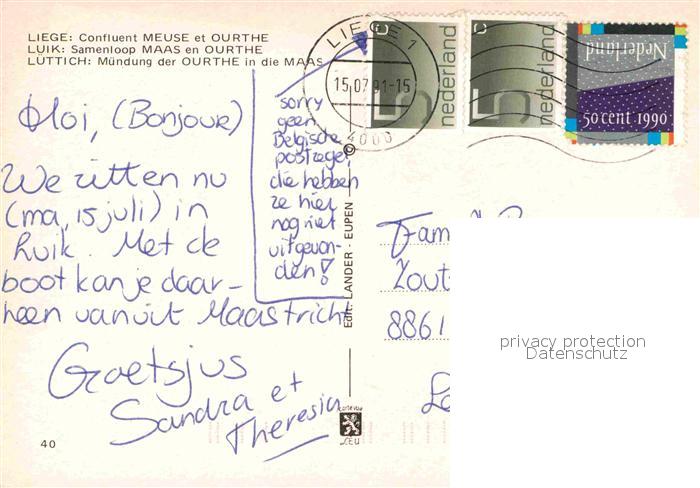 LIEGE: Confluent MEUSE et OURTHE
LUIK: Samenloop MAAS en OURTHE
LÜTTICH: Mündung der OURTHE in die MAAS
LIEGE 1
15.07.91-15
4000
5
nederland
5
nederland
Nederland
50 cent 1990
Hoi, (Bonjour)
We zitten nu
(ma, 15 juli) in
Luik. Met de
boot kan je daar-
heen vanuit Maastricht
Groetsjus
Sandra et
Theresia
sorry
geen
Belgische
postzegel
die hebben
ze hier
nog niet
uitgevon-
den!
Edit. LANDER - EUPEN ©
Fam
Zout
8861
privacy protection
Datenschutz
40